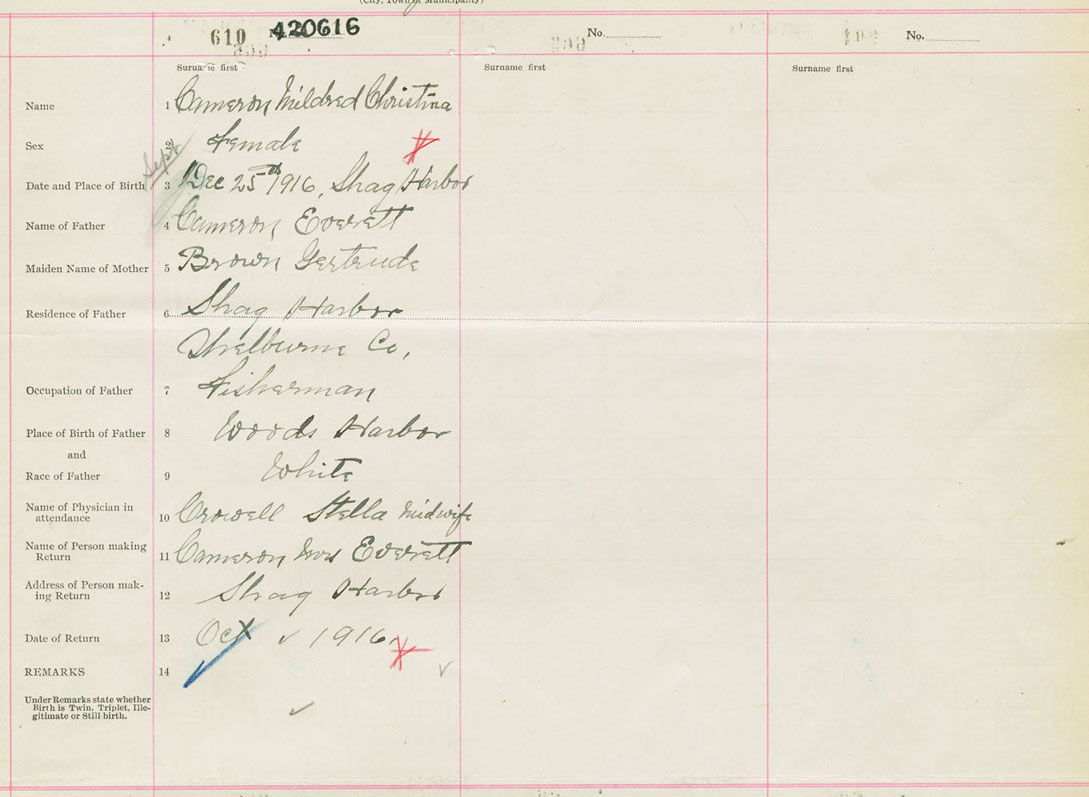 (City, Town or Municipality)
610 No. 420616 No. No.
Surname first Surname first Surname first
Name 1 Cameron, Mildred Christina
Sex 2 Female
Sept
Date and Place of Birth 3 Dec 25th 1916, Shag Harbor
Name of Father 4 Cameron, Everett
Maiden Name of Mother 5 Brown Gertrude
Residence of Father 6 Shag Harbor
Shelburne Co,
Occupation of Father 7 Fisherman
Place of Birth of Father 8 Woods Harbor
and
Race of Father 9 White
Name of Physician in
attendance 10 Crowell Stella Midwife
Name of Person making
Return 11 Cameron, Mrs Everett
Address of Person mak-
ing Return 12 Shag Harbor
Date of Return 13 Oct 1916
REMARKS 14
Under Remarks state whether
Birth is Twin, Triplet, Ille-
gitimate or Still birth.